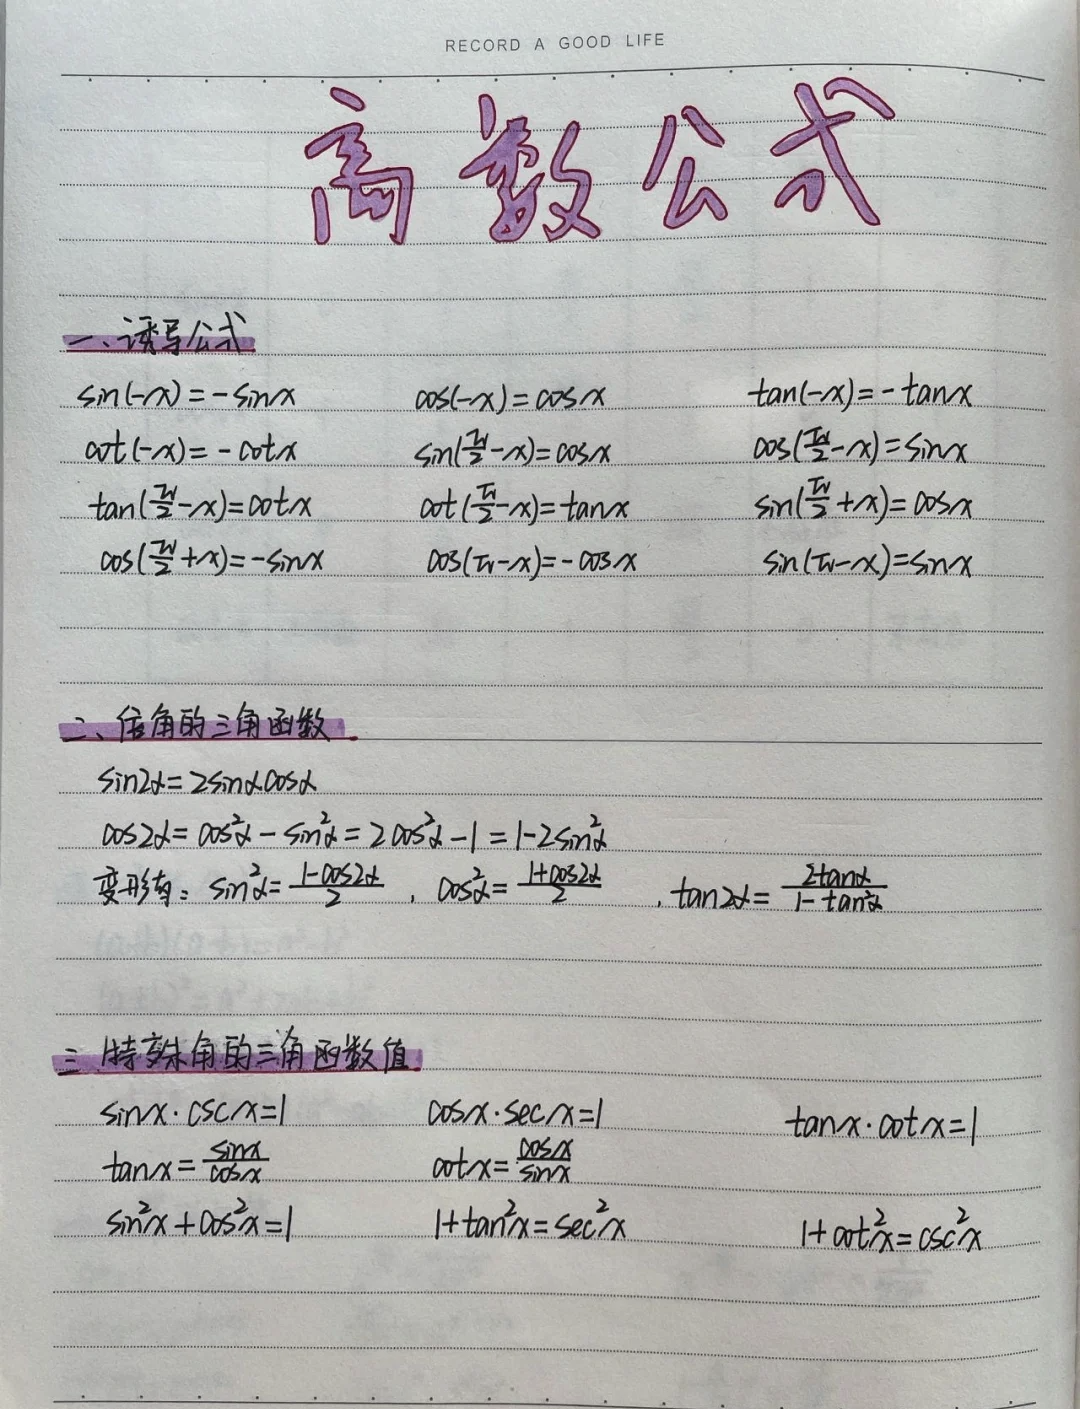 RECORD A GOOD LIFE
高数公式
一、诱导公式
sin(-x)=-sinx cos(-x)=cosx tan(-x)=-tanx
cot(-x)=-cotx sin(π/2-x)=cosx cos(π/2-x)=sinx
tan(π/2-x)=cotx cot(π/2-x)=tanx sin(π/2+x)=cosx
cos(π/2+x)=-sinx cos(π-x)=-cosx sin(π-x)=sinx
二、倍角的三角函数
sin2α=2sinαcosα
cos2α=cos²α-sin²α=2cos²α-1=1-2sin²α
变形有: sin²α=(1-cos2α)/2 , cos²α=(1+cos2α)/2 , tan2α=2tanα/(1-tan²α)
三.特殊角的三角函数值
sinx·cscx=1 cosx·secx=1 tanx·cotx=1
tanx=sinx/cosx cotx=cosx/sinx
sin²x+cos²x=1 1+tan²x=sec²x 1+cot²x=csc²x